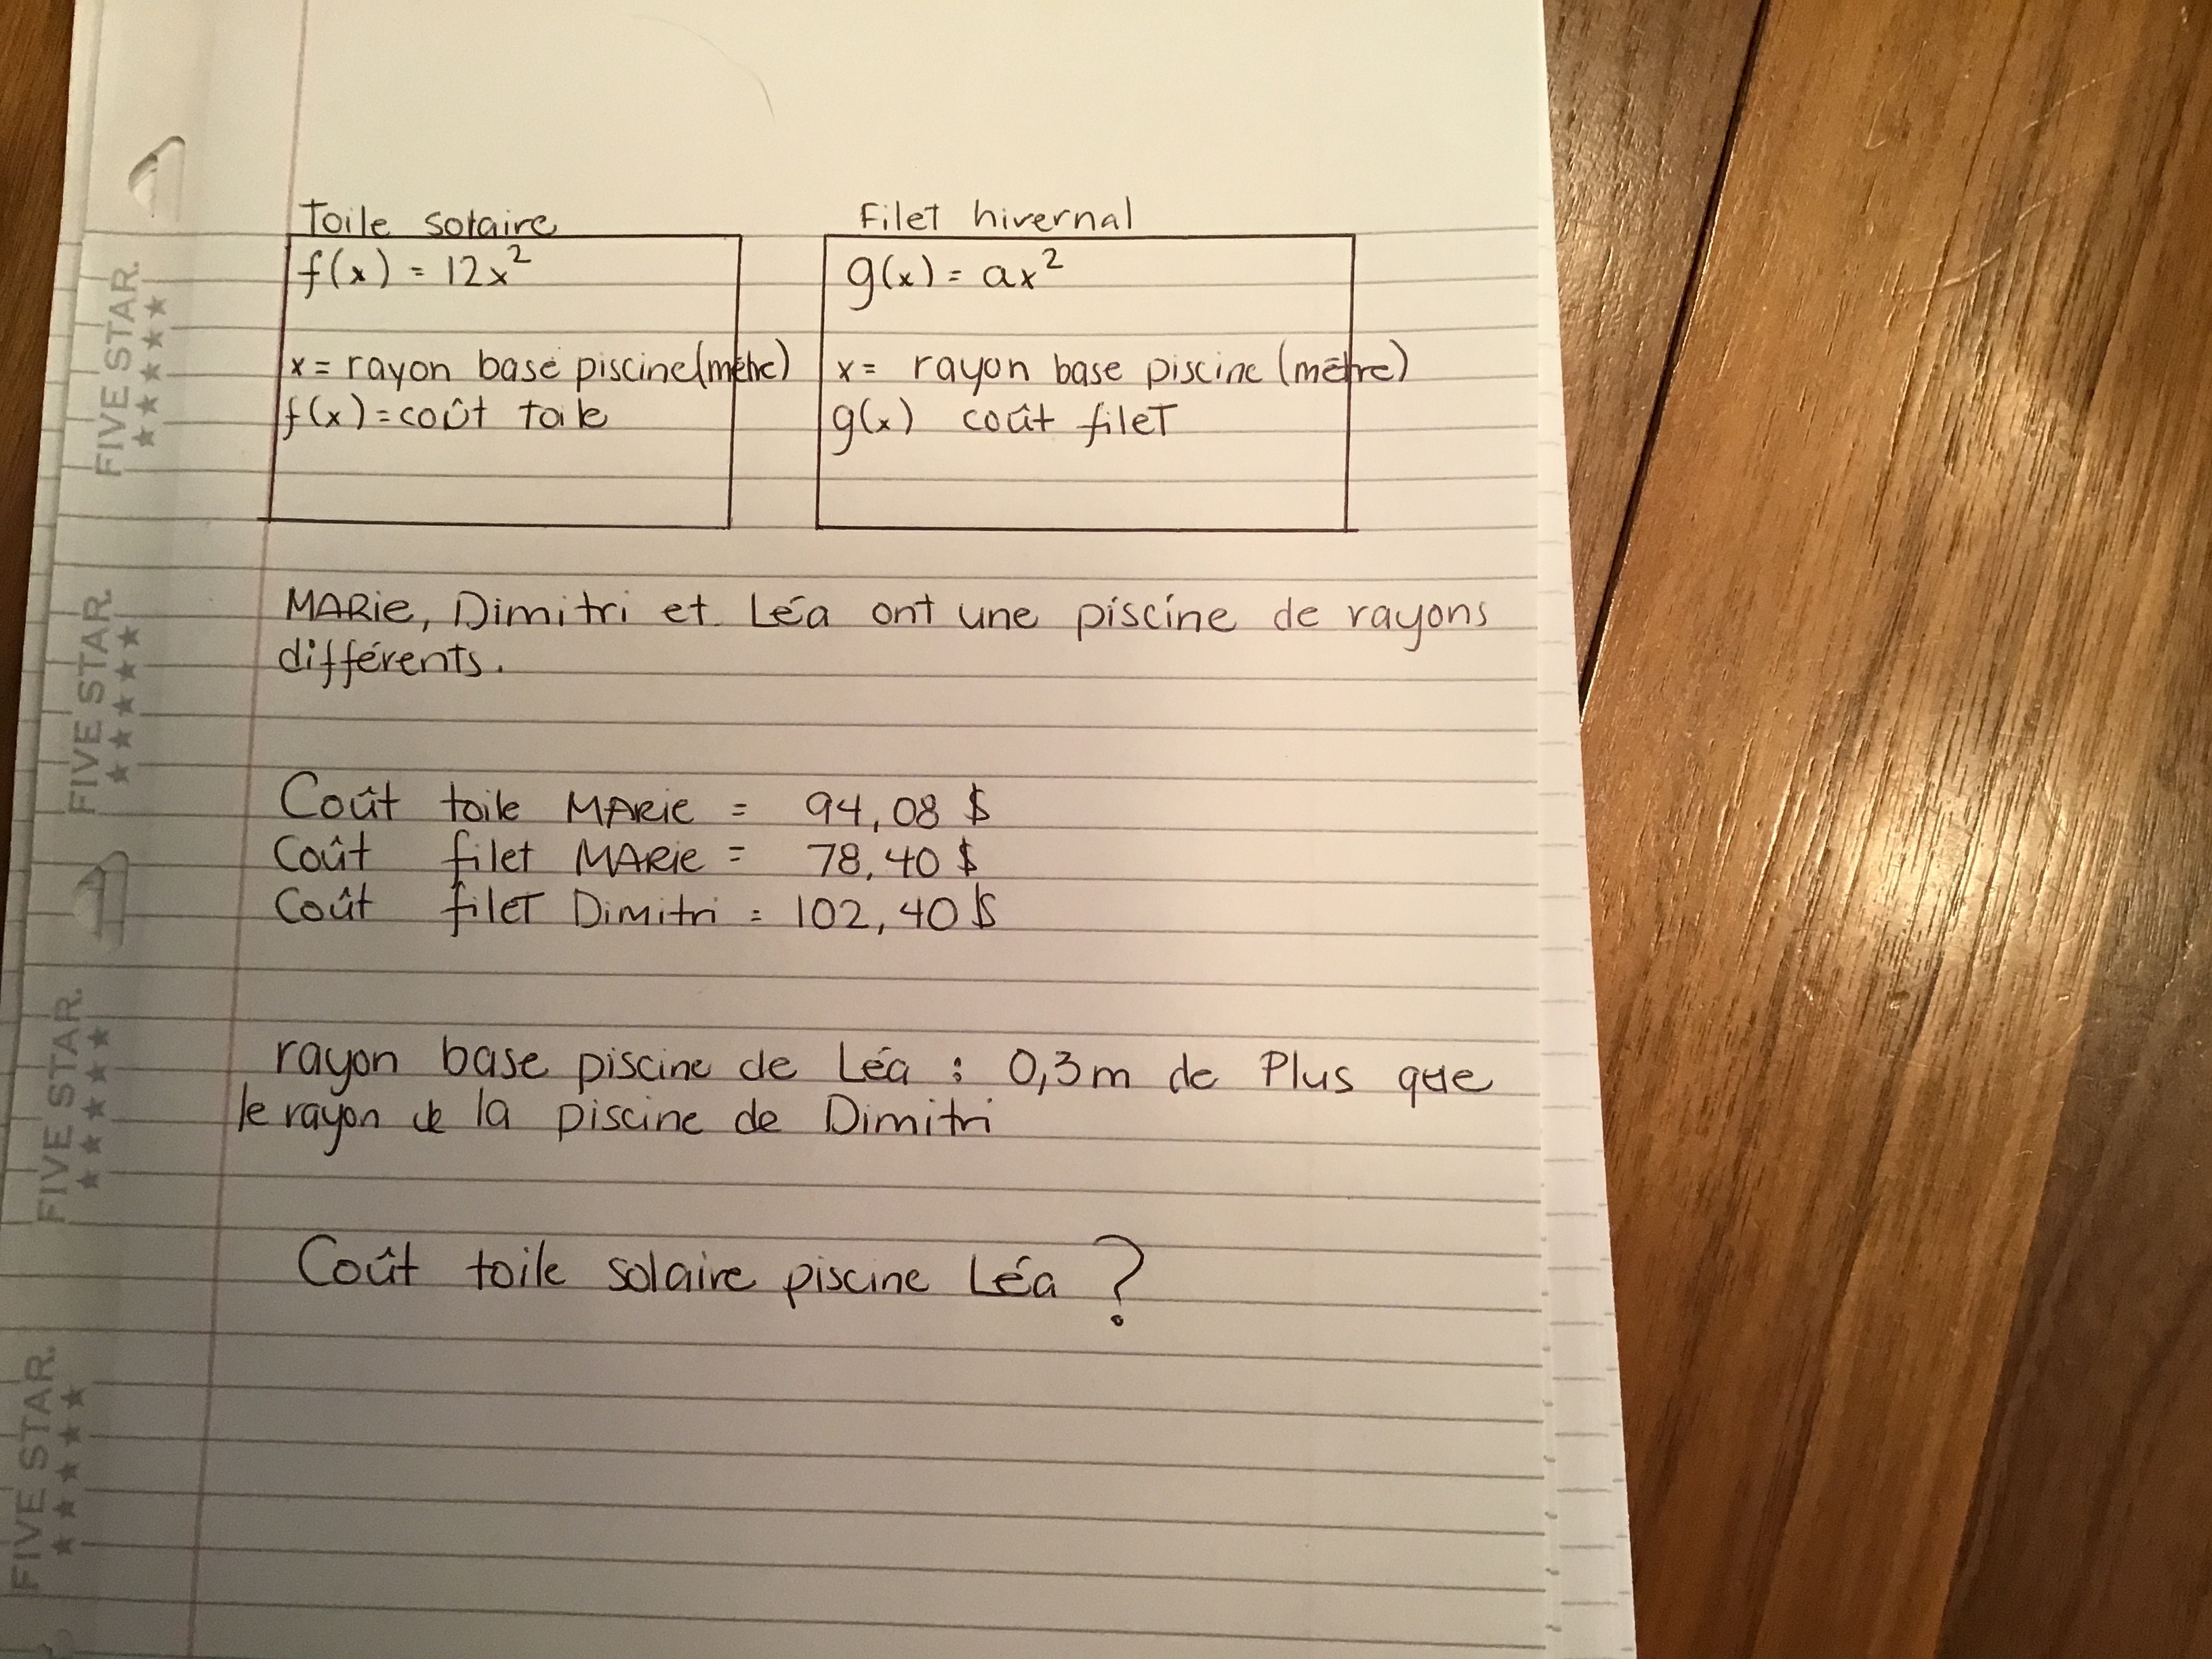 Toile solaire
f(x) = 12x²
x = rayon base piscine (mètre)
f(x) = coût toile
Filet hivernal
g(x) = ax²
x = rayon base piscine (mètre)
g(x) coût filet
MARie, Dimitri et Léa ont une piscine de rayons
différents.
Coût toile MARie = 94,08 $
Coût filet MARie = 78,40 $
Coût filet Dimitri = 102,40 $
rayon base piscine de Léa : 0,3m de Plus que
le rayon de la piscine de Dimitri
Coût toile solaire piscine Léa ?
FIVE STAR.
FIVE STAR.
FIVE STAR.
FIVE STAR.